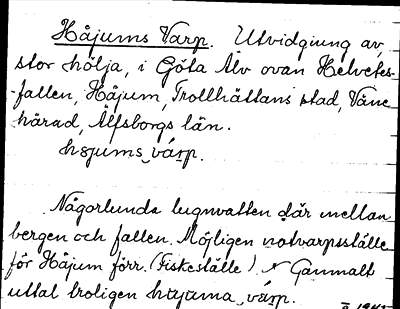 Håjums Varp. Utvidgning av
stor hölja, i Göta Älv ovan Helvetes-
fallen, Håjum, Trollhättans stad, Väne
härad, Älfsborgs län.
hɔjums vārp.
Någorlunda lugnvatten där mellan
bergen och fallen. Möjligen notvarpsställe
för Håjum förr. (Fiskeställe). Gammalt
uttal troligen vārp.